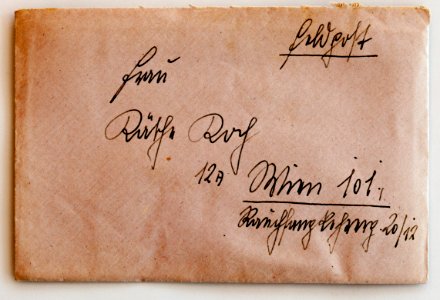 Feldpost
Frau
Käthe Koch
12a Wien 101,
Rauchfangkehrerg. 20/12